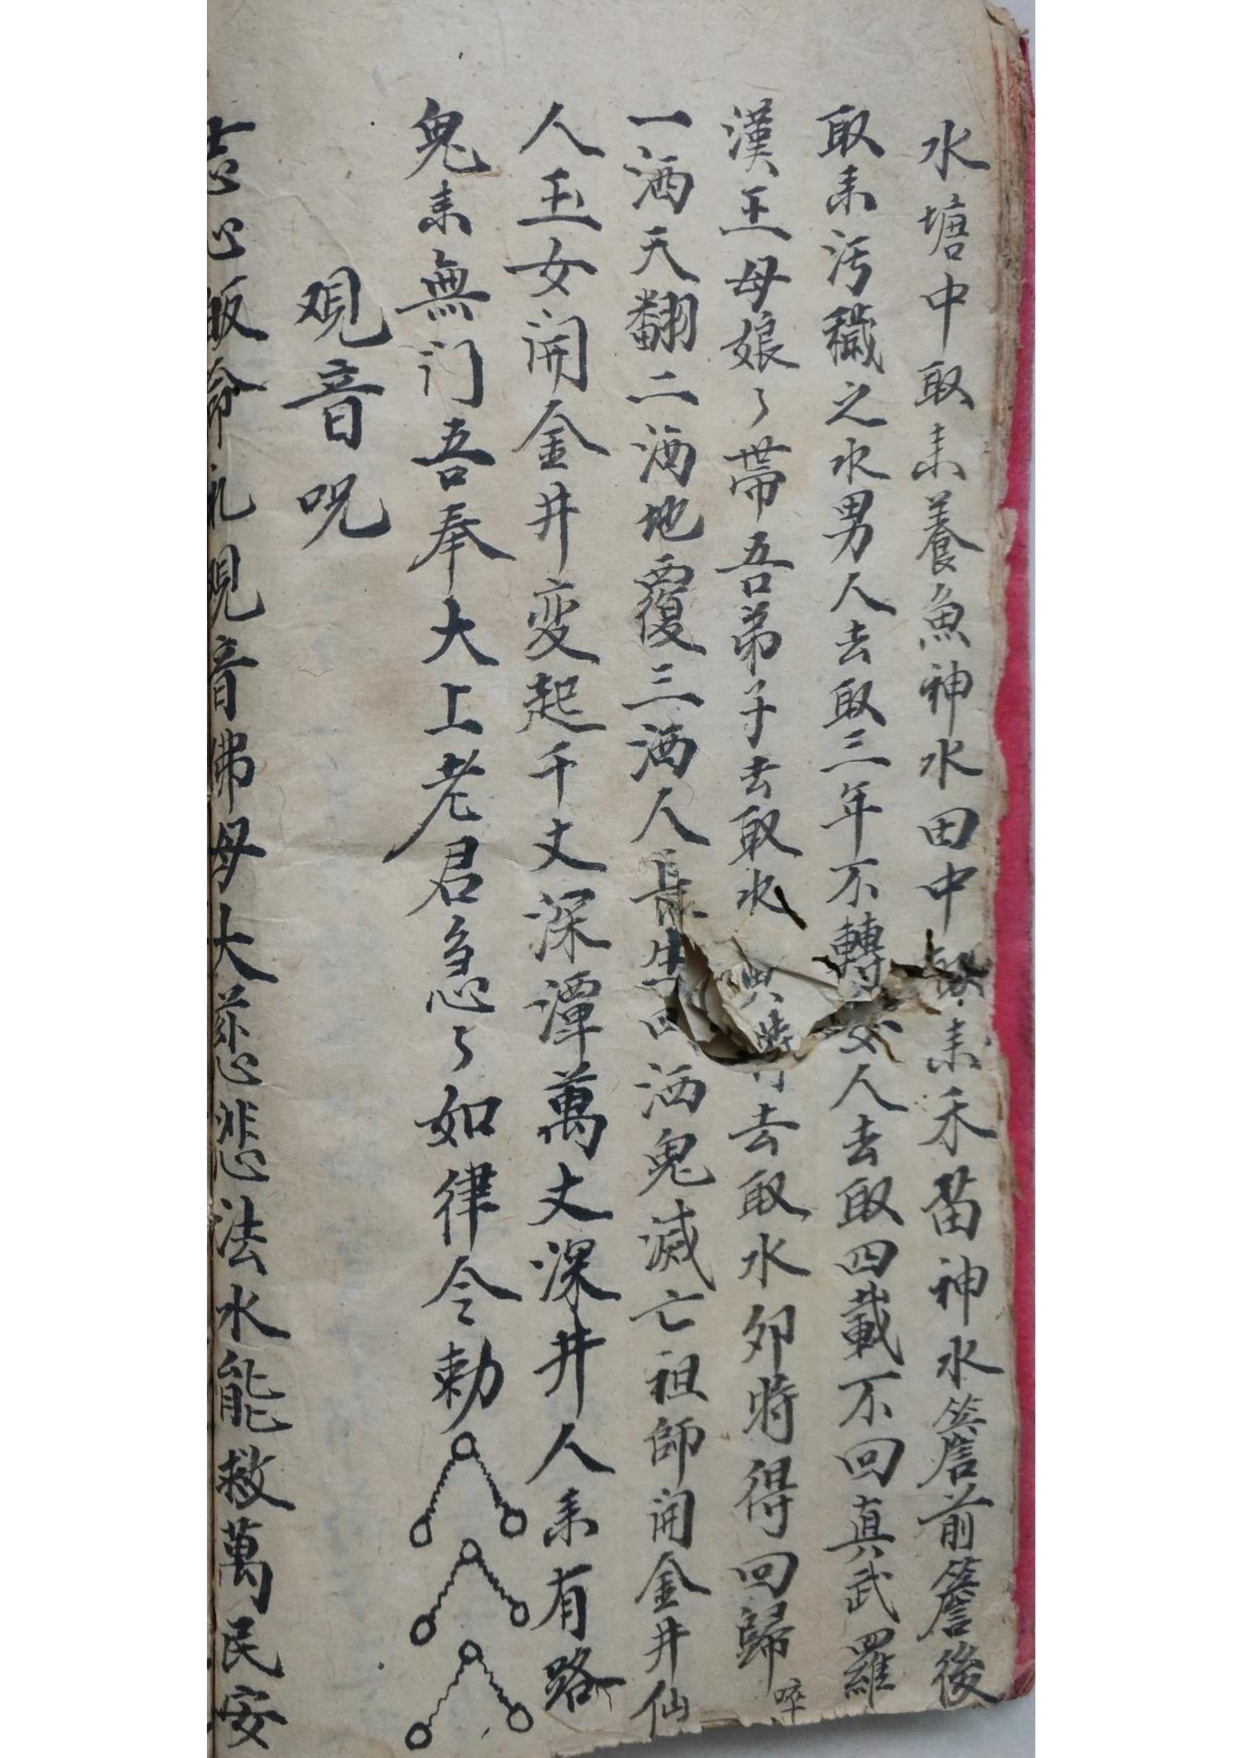 水塘中取耒養魚神水田中取耒禾苗神水簷前簷後
取耒污穢之水男人去取三年不轉女人去取四載不回真武羅
漢王母娘々帶吾弟子去取水時去取水夘時得回歸啐
一洒天翻二洒地覆三洒人長生四洒鬼滅亡祖師開金井仙
人玉女開金井变起千丈深潭萬丈深井人耒有路
鬼耒無门吾奉大上老君急々如律令勅
观音咒
志心皈命礼观音佛母大慈悲法水能救萬民安